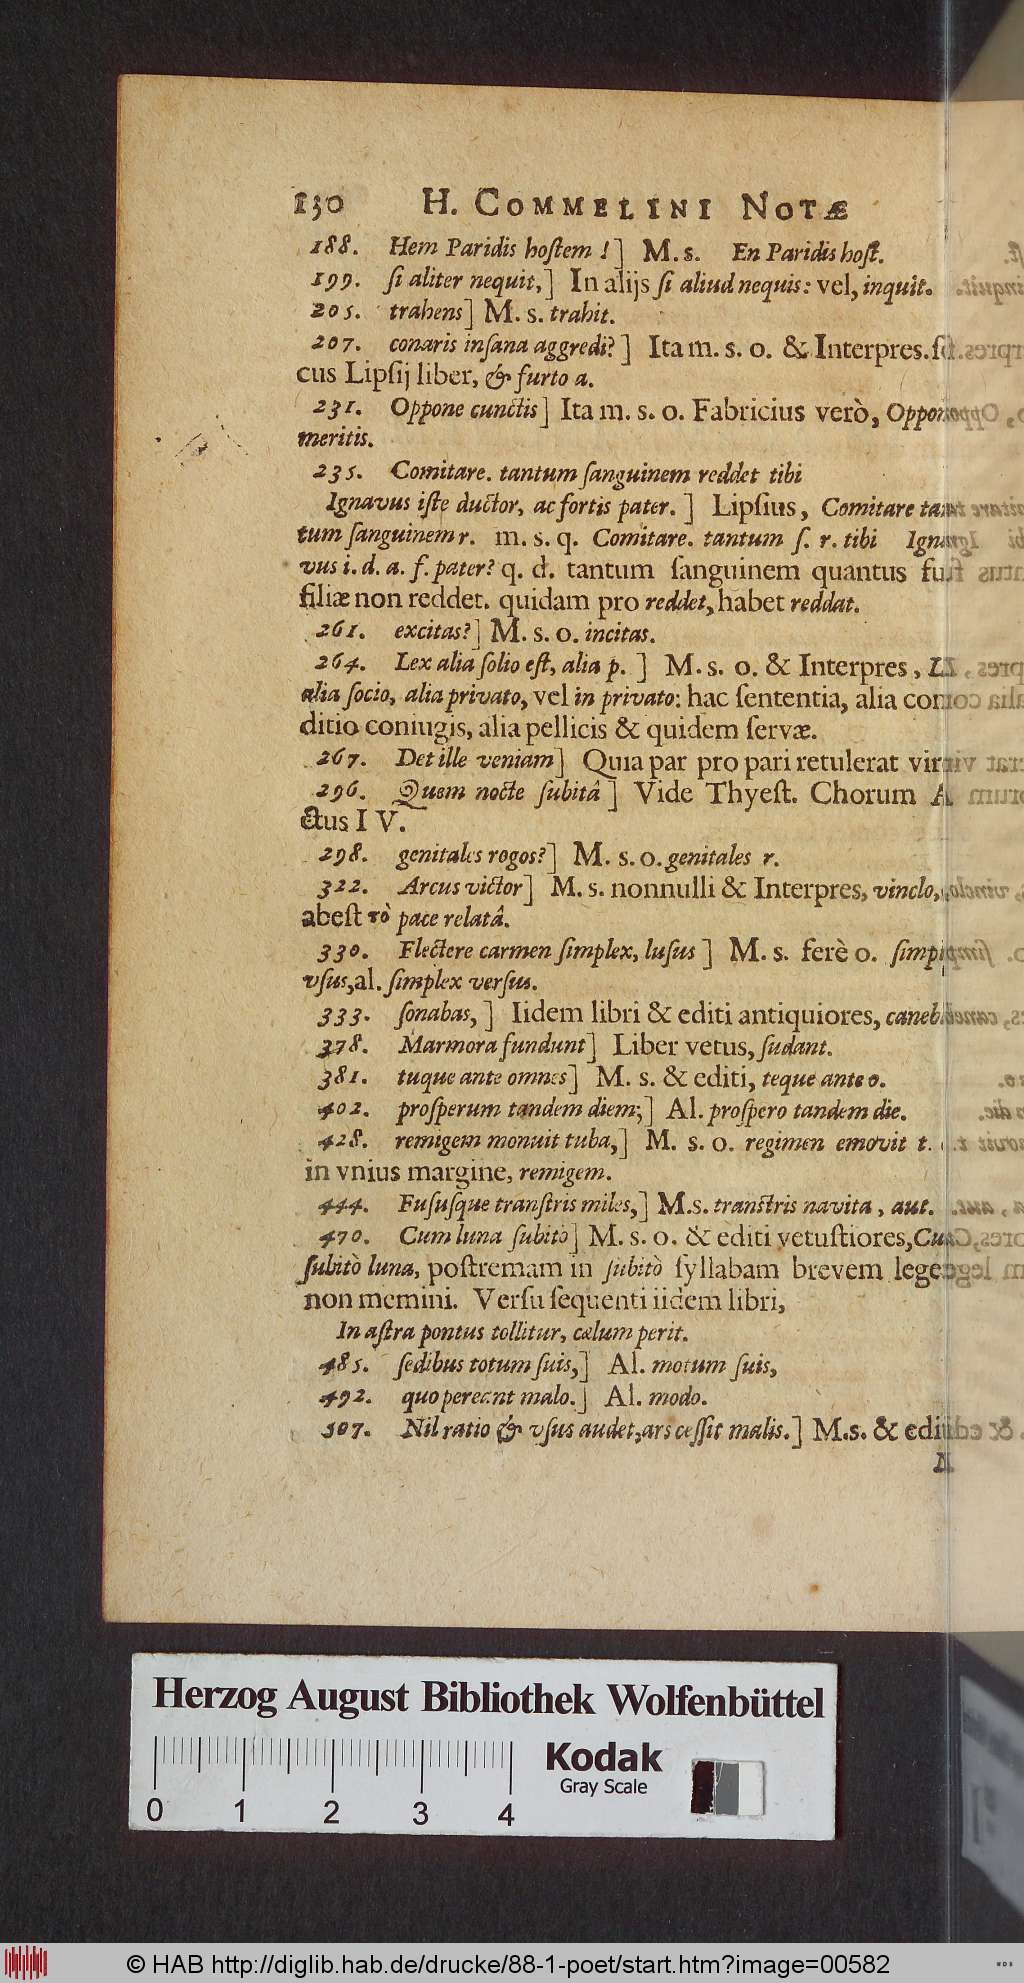 130 H. COMMELINI NOTÆ
188. Hem Paridis hoſtem !] M. s. En Paridis hoſt.
199. ſi aliter nequit,] In alijs ſi aliud nequis: vel, inquit.
205. trahens] M. s. trahit.
207. conaris inſana aggredi?] Ita m. s. o. & Interpres.
cus Lipſij liber, & furto a.
231. Oppone cunctis] Ita m. s. o. Fabricius verò, Oppone
meritis.
235. Comitare. tantum ſanguinem reddet tibi
Ignavus iſte ductor, ac fortis pater.] Lipſius, Comitare tan
tum ſanguinem r. m. s. q. Comitare. tantum ſ. r. tibi Igna
vus i. d. a. f. pater? q. d. tantum ſanguinem quantus fuſ
filiæ non reddet. quidam pro reddet, habet reddat.
261. excitas?] M. s. o. incitas.
264. Lex alia ſolio eſt, alia p.] M. s. o. & Interpres, L
alia ſocio, alia privato, vel in privato: hac ſententia, alia con
ditio coniugis, alia pellicis & quidem ſervæ.
267. Det ille veniam] Quia par pro pari retulerat vir
296. Quem nocte ſubitâ] Vide Thyeſt. Chorum A
ctus IV.
298. genitales rogos?] M. s. o. genitales r.
322. Arcus victor] M. s. nonnulli & Interpres, vinclo,
abeſt τὸ pace relatâ.
330. Flectere carmen ſimplex, luſus] M. s. ferè o. ſimp
vſus, al. ſimplex verſus.
333. ſonabas,] Iidem libri & editi antiquiores, caneb
378. Marmora fundunt] Liber vetus, ſudant.
381. tuque ante omnes] M. s. & editi, teque ante o.
402. proſperum tandem diem;] Al. proſpero tandem die.
428. remigem monuit tuba,] M. s. o. regimen emovit t.
in vnius margine, remigem.
444. Fuſuſque tranſtris miles,] M. s. tranſtris navita, aut.
470. Cum luna ſubitò] M. s. o. & editi vetuſtiores, Cum
ſubitò luna, poſtremam in ſubitò ſyllabam brevem lege
non memini. Verſu ſequenti iidem libri,
In aſtra pontus tollitur, cælum perit.
485. ſedibus totum ſuis,] Al. motum ſuis,
492. quo pereant malo.] Al. modo.
507. Nil ratio & vſus audet, ars ceſſit malis.] M. s. & editi
N
Herzog August Bibliothek Wolfenbüttel
Kodak
Gray Scale
0 1 2 3 4
© HAB http://diglib.hab.de/drucke/88-1-poet/start.htm?image=00582